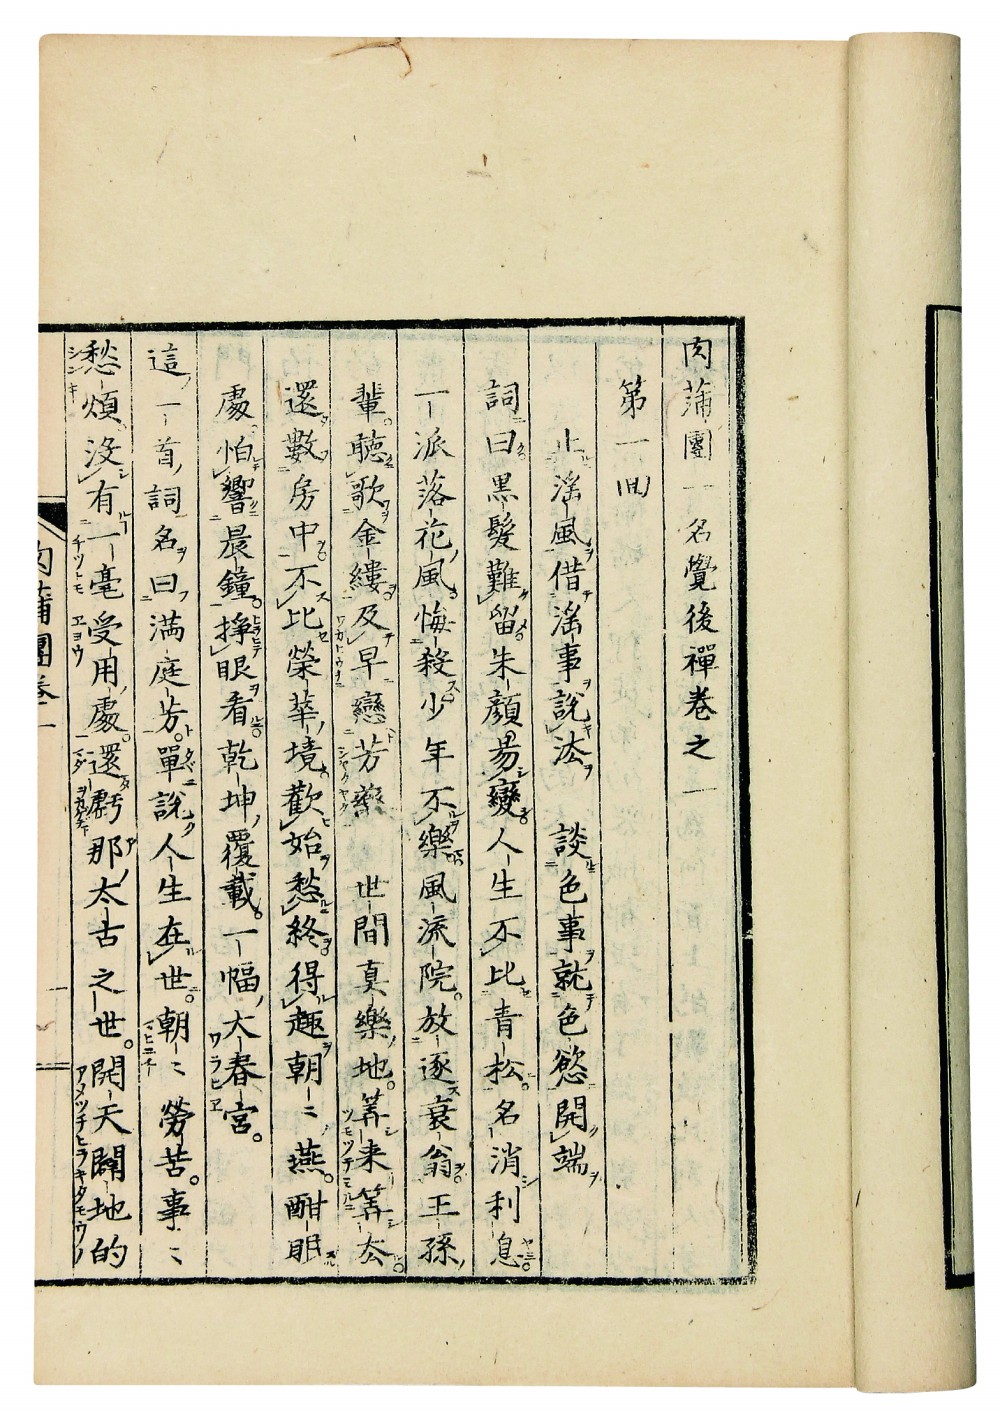 肉蒲團一名覺後禪卷之一
第一回
止淫風借淫事說法　談色事就色慾開端
詞曰黑髮難留朱顏易變人生不比青松名消利息
一派落花風悔殺少年不樂風流院放逐衰翁王孫
輩聽歌金縷及早戀芳叢　世間真樂地筭来筭去
還數房中不比榮華境歡始愁終得趣朝〻燕酣眠
處怕響晨鐘掙眼看乾坤覆載一幅大春宮
這一首詞名曰滿庭芳單說人生在世朝〻勞苦事〻
愁煩没有一毫受用處還虧那太古之世開天闢地的
肉蒲團卷一